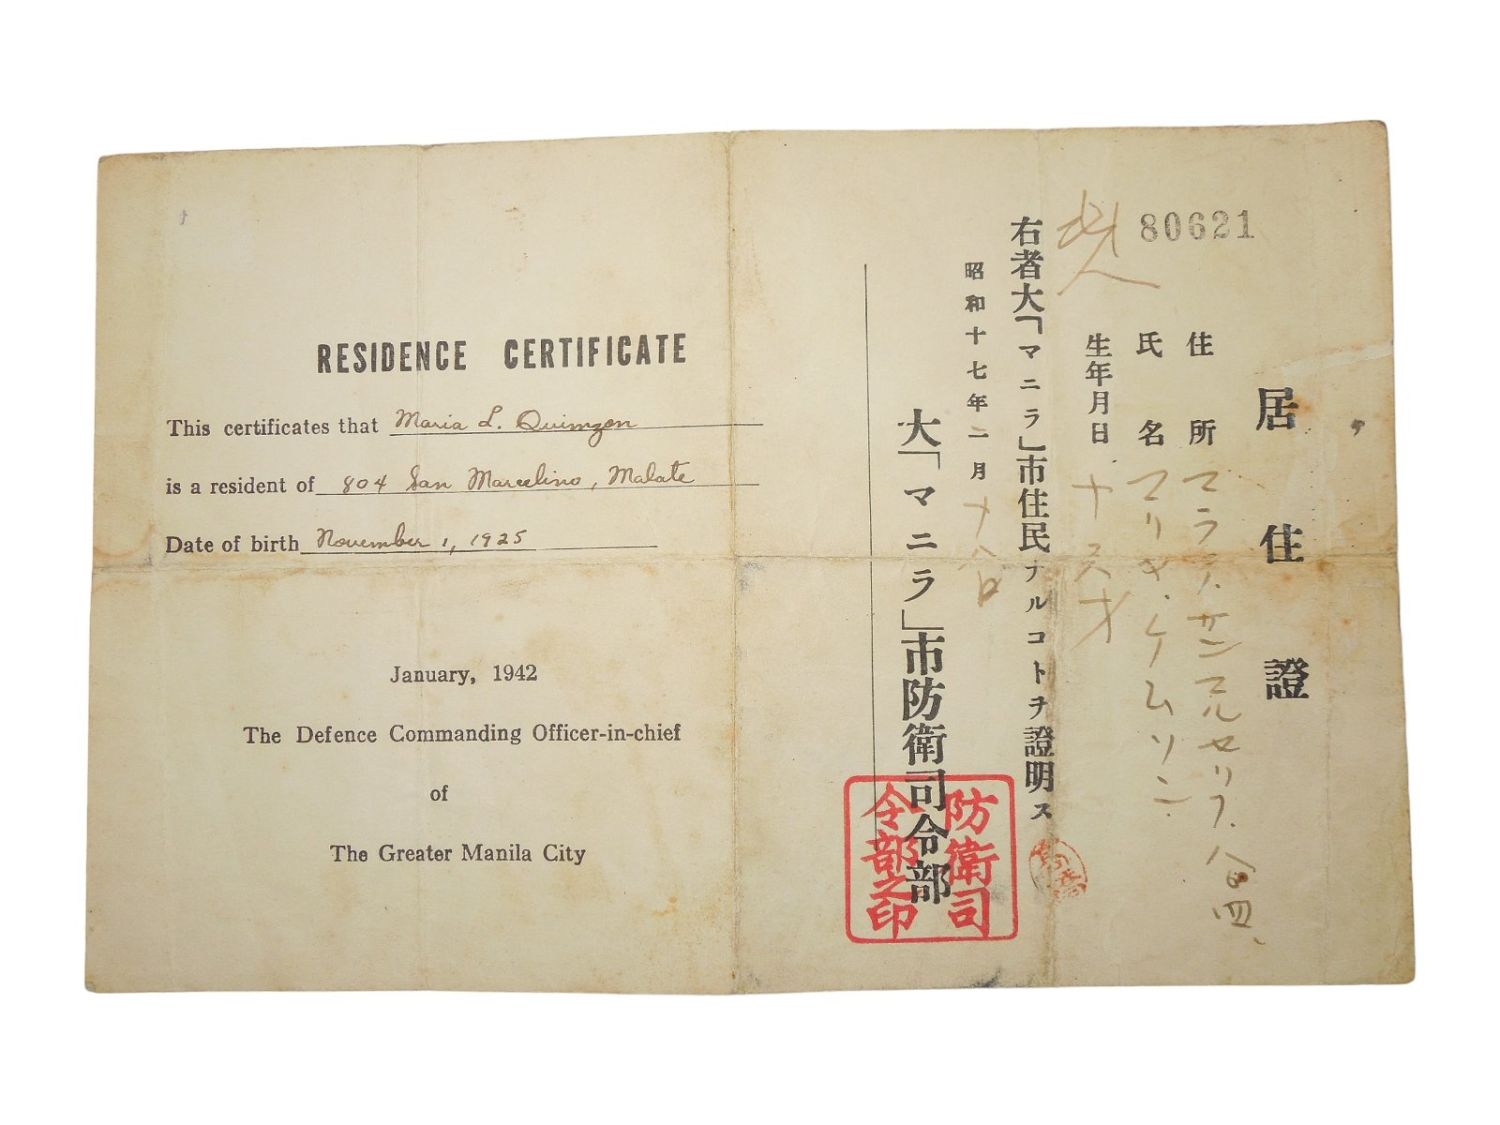 RESIDENCE CERTIFICATE
This certificates that Maria L. Quimzon
is a resident of 804 San Marcelino, Malate
Date of birth November 1, 1925
January, 1942
The Defence Commanding Officer-in-chief
of
The Greater Manila City
80621
居住證
住所 マラテ、サンマルセリノ、八〇四、
氏名 マリヤ・ケムソン
生年月日 十六才
右者大「マニラ」市住民ナルコトヲ證明ス
昭和十七年二月十八日
大「マニラ」市防衛司令部
防衛司
令部之印